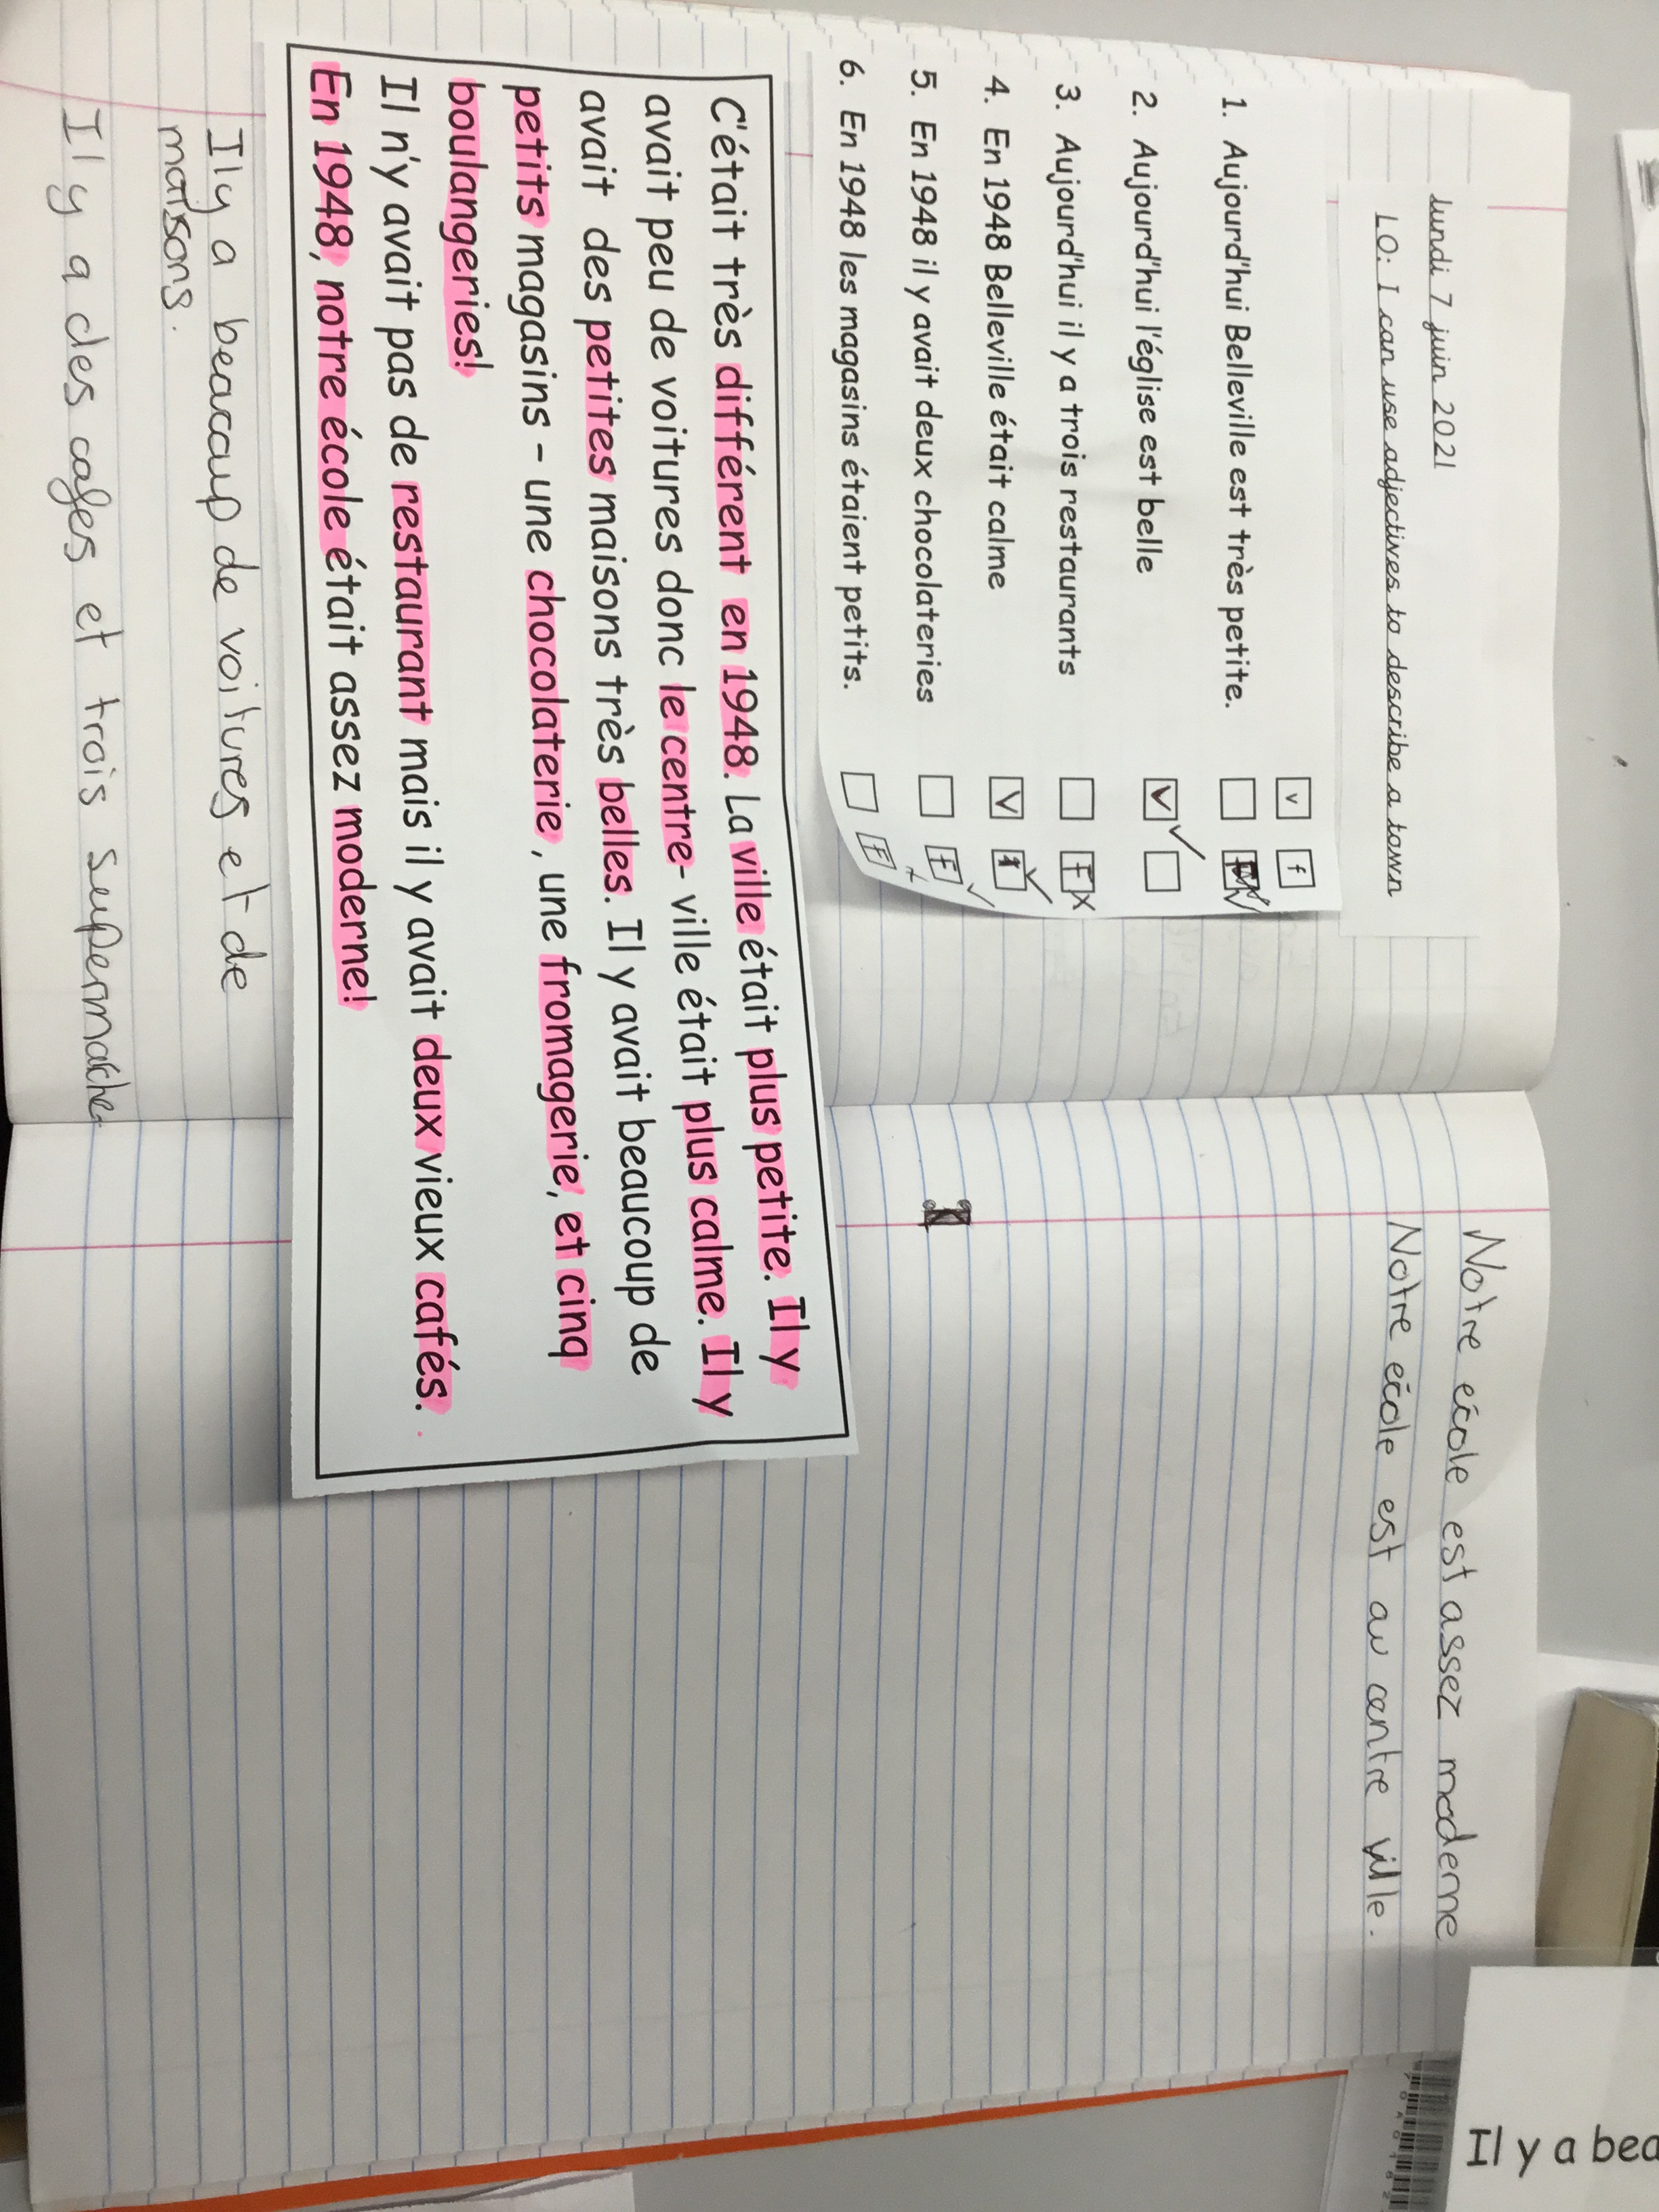 lundi 7 juin 2021
LO: I can use adjectives to describe a town
v f
1. Aujourd'hui Belleville est très petite.
2. Aujourd'hui l'église est belle V
3. Aujourd'hui il y a trois restaurants F
4. En 1948 Belleville était calme V
5. En 1948 il y avait deux chocolateries F
6. En 1948 les magasins étaient petits. F
C'était très différent en 1948. La ville était plus petite. Il y
avait peu de voitures donc le centre-ville était plus calme. Il y
avait des petites maisons très belles. Il y avait beaucoup de
petits magasins - une chocolaterie, une fromagerie, et cinq
boulangeries!
Il n'y avait pas de restaurant mais il y avait deux vieux cafés.
En 1948, notre école était assez moderne!
Il y a beaucoup de voitures et de
maisons.
Il y a des cafes et trois supermache
Notre école est assez moderne
Notre école est au centre ville.
Il y a bea